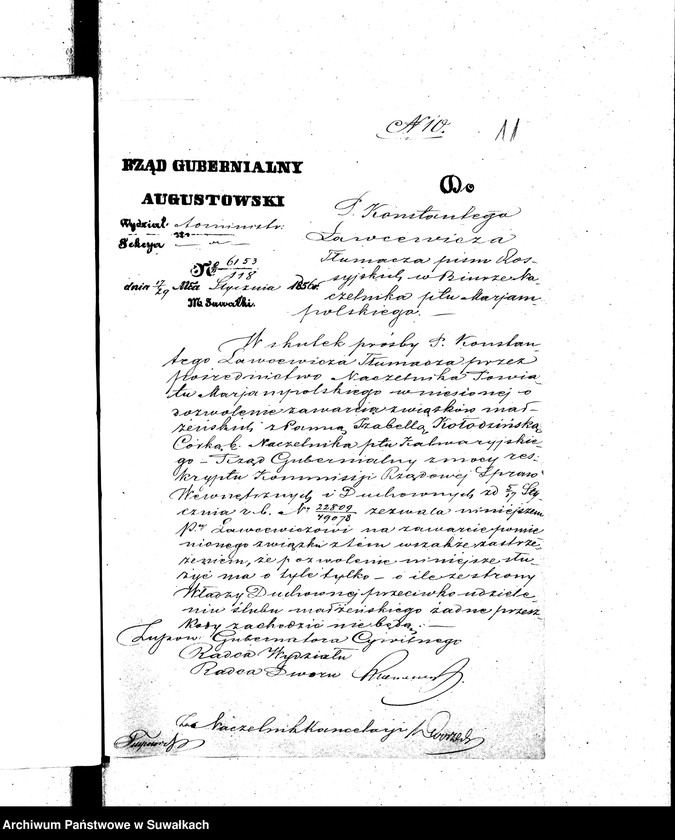 N 10.
11
RZĄD GUBERNIALNY
AUGUSTOWSKI
Wydział Administr:
Sekcya
№ 6153/118
dnia 17/29 Mca Stycznia 1856 r.
M. Suwałki.
Do
P. Konstantego
Lawcewicza
Tłumacza pism Ros-
syjskich w Biurze Na-
czelnika ptu Marjam-
polskiego. —
W skutek prośby P. Konstan-
tego Lawcewicza Tłumacza przez
pośrednictwo Naczelnika Powia-
tu Marjampolskiego wniesionej o
dozwolenie zawarcia związków mał-
żeńskich z Panną Izabellą Kołodzińską
Córką b. Naczelnika ptu Kalwaryjskie-
go — Rząd Gubernialny z mocy res-
kryptu Kommissji Rządowej Spraw
Wewnętrznych i Duchownych zd 5/17 Sty-
cznia r. b. Nr 22809/49078 zezwala niniejszem
P. Lawcewiczowi na zawarcie pomie-
nionego związku z tem wszakże zastrze-
żeniem, że pozwolenie niniejsze słu-
żyć ma o tyle tylko — o ile ze strony
Władzy Duchownej przeciwko udziele-
niu ślubu małżeńskiego żadne przesz-
kody zachodzić nie będą. —
Z upow: Gubernatora Cywilnego
Radca Wydziału
Radca Dworu
Za Naczelnik Kancelarji
Archiwum Państwowe w Suwałkach